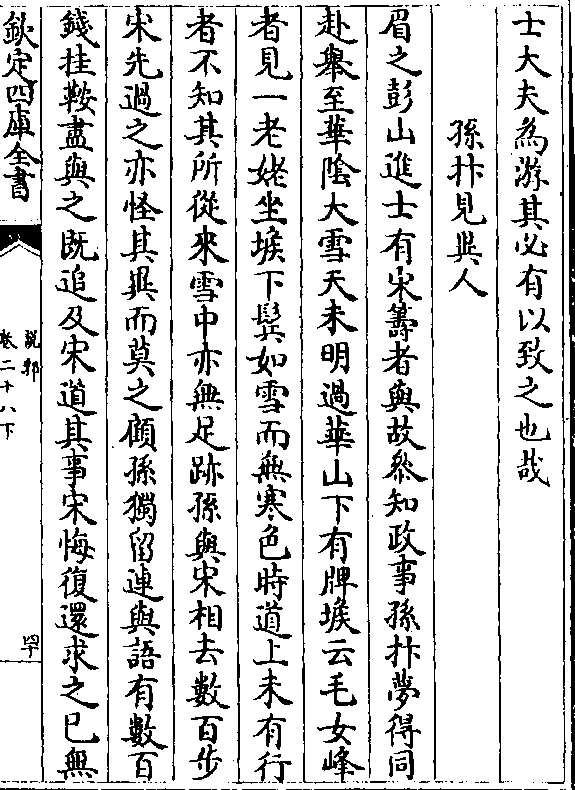 士大夫為游其必有以致之也哉
孫抃見異人
眉之彭山進士有宋籌者與故叅知政事孫抃夢得同
赴舉至華陰大雪天未明過華山下有牌堠云毛女峰
者見一老姥坐堠下鬓如雪而無寒色時道上未有行
者不知其所從來雪中亦無足跡孫與宋相去數百步
宋先過之亦怪其異而莫之顧孫獨留連與語有數百
錢挂鞍盡與之既追及宋道其事宋悔復還求之已無
欽定四庫全書
說郛
卷二十八下
四十